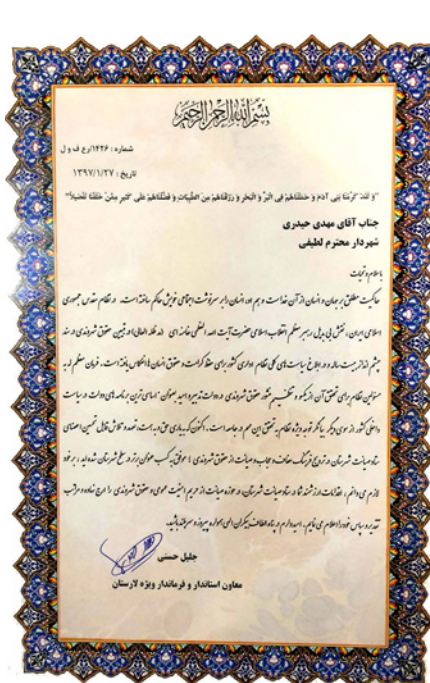 بسم الله الرحمن الرحیم
شماره : ۱۴۲۶/رع ف و ل
تاریخ : ۱۳۹۷/۱/۲۷
"وَ لَقَدْ کَرَّمْنَا بَنِی آدَمَ وَ حَمَلْنَاهُمْ فِی الْبَرِّ وَ الْبَحْرِ وَ رَزَقْنَاهُمْ مِنَ الطَّیِّبَاتِ وَ فَضَّلْنَاهُمْ عَلَی کَثِیرٍ مِمَّنْ خَلَقْنَا تَفْضِیلاً"
جناب آقای مهدی حیدری
شهردار محترم لطیفی
با سلام و تحیات
حاکمیت مطلق بر جهان و انسان از آن خداست و هم او، انسان را بر سرنوشت اجتماعی خویش حاکم ساخته است. در نظام مقدس جمهوری
اسلامی ایران، نقش بی بدیل رهبر معظم انقلاب اسلامی حضرت آیت الله العظمی خامنه ای (مد ظله العالی) در تبیین حقوق شهروندی در سند
چشم انداز بیست ساله و در ابلاغ سیاست های کلی نظام اداری کشور برای حفظ کرامت و حقوق انسان ها انعکاس یافته است. فرمان معظم له به
مسئولین نظام برای تحقق آن از یکسو و تنظیم منشور حقوق شهروندی در دولت تدبیر و امید بعنوان اساسی ترین برنامه های دولت در سیاست
داخلی کشور از سوی دیگر بیانگر توجه ویژه نظام به تحقق این مهم در جامعه است. اکنون که به یاری حق و به همت، تعهد و تلاش قابل تحسین اعضای
ستاد صیانت شهرستان در ترویج فرهنگ عفاف و حجاب و صیانت از حقوق شهروندی) موفق به کسب عنوان برتر در سطح شهرستان شده اید، بر خود
لازم می دانم، اقدامات ارزشمند شما در ستاد صیانت شهرستان، در حوزه صیانت از حریم امنیت عمومی و حقوق شهروندی را ارج نهاده و مراتب
تقدیر و سپاس خود را اعلام می نمایم. امیدوارم در پناه الطاف بیکران الهی همواره پیروز و سربلند باشید.
جلیل حسنی
معاون استاندار و فرماندار ویژه لارستان